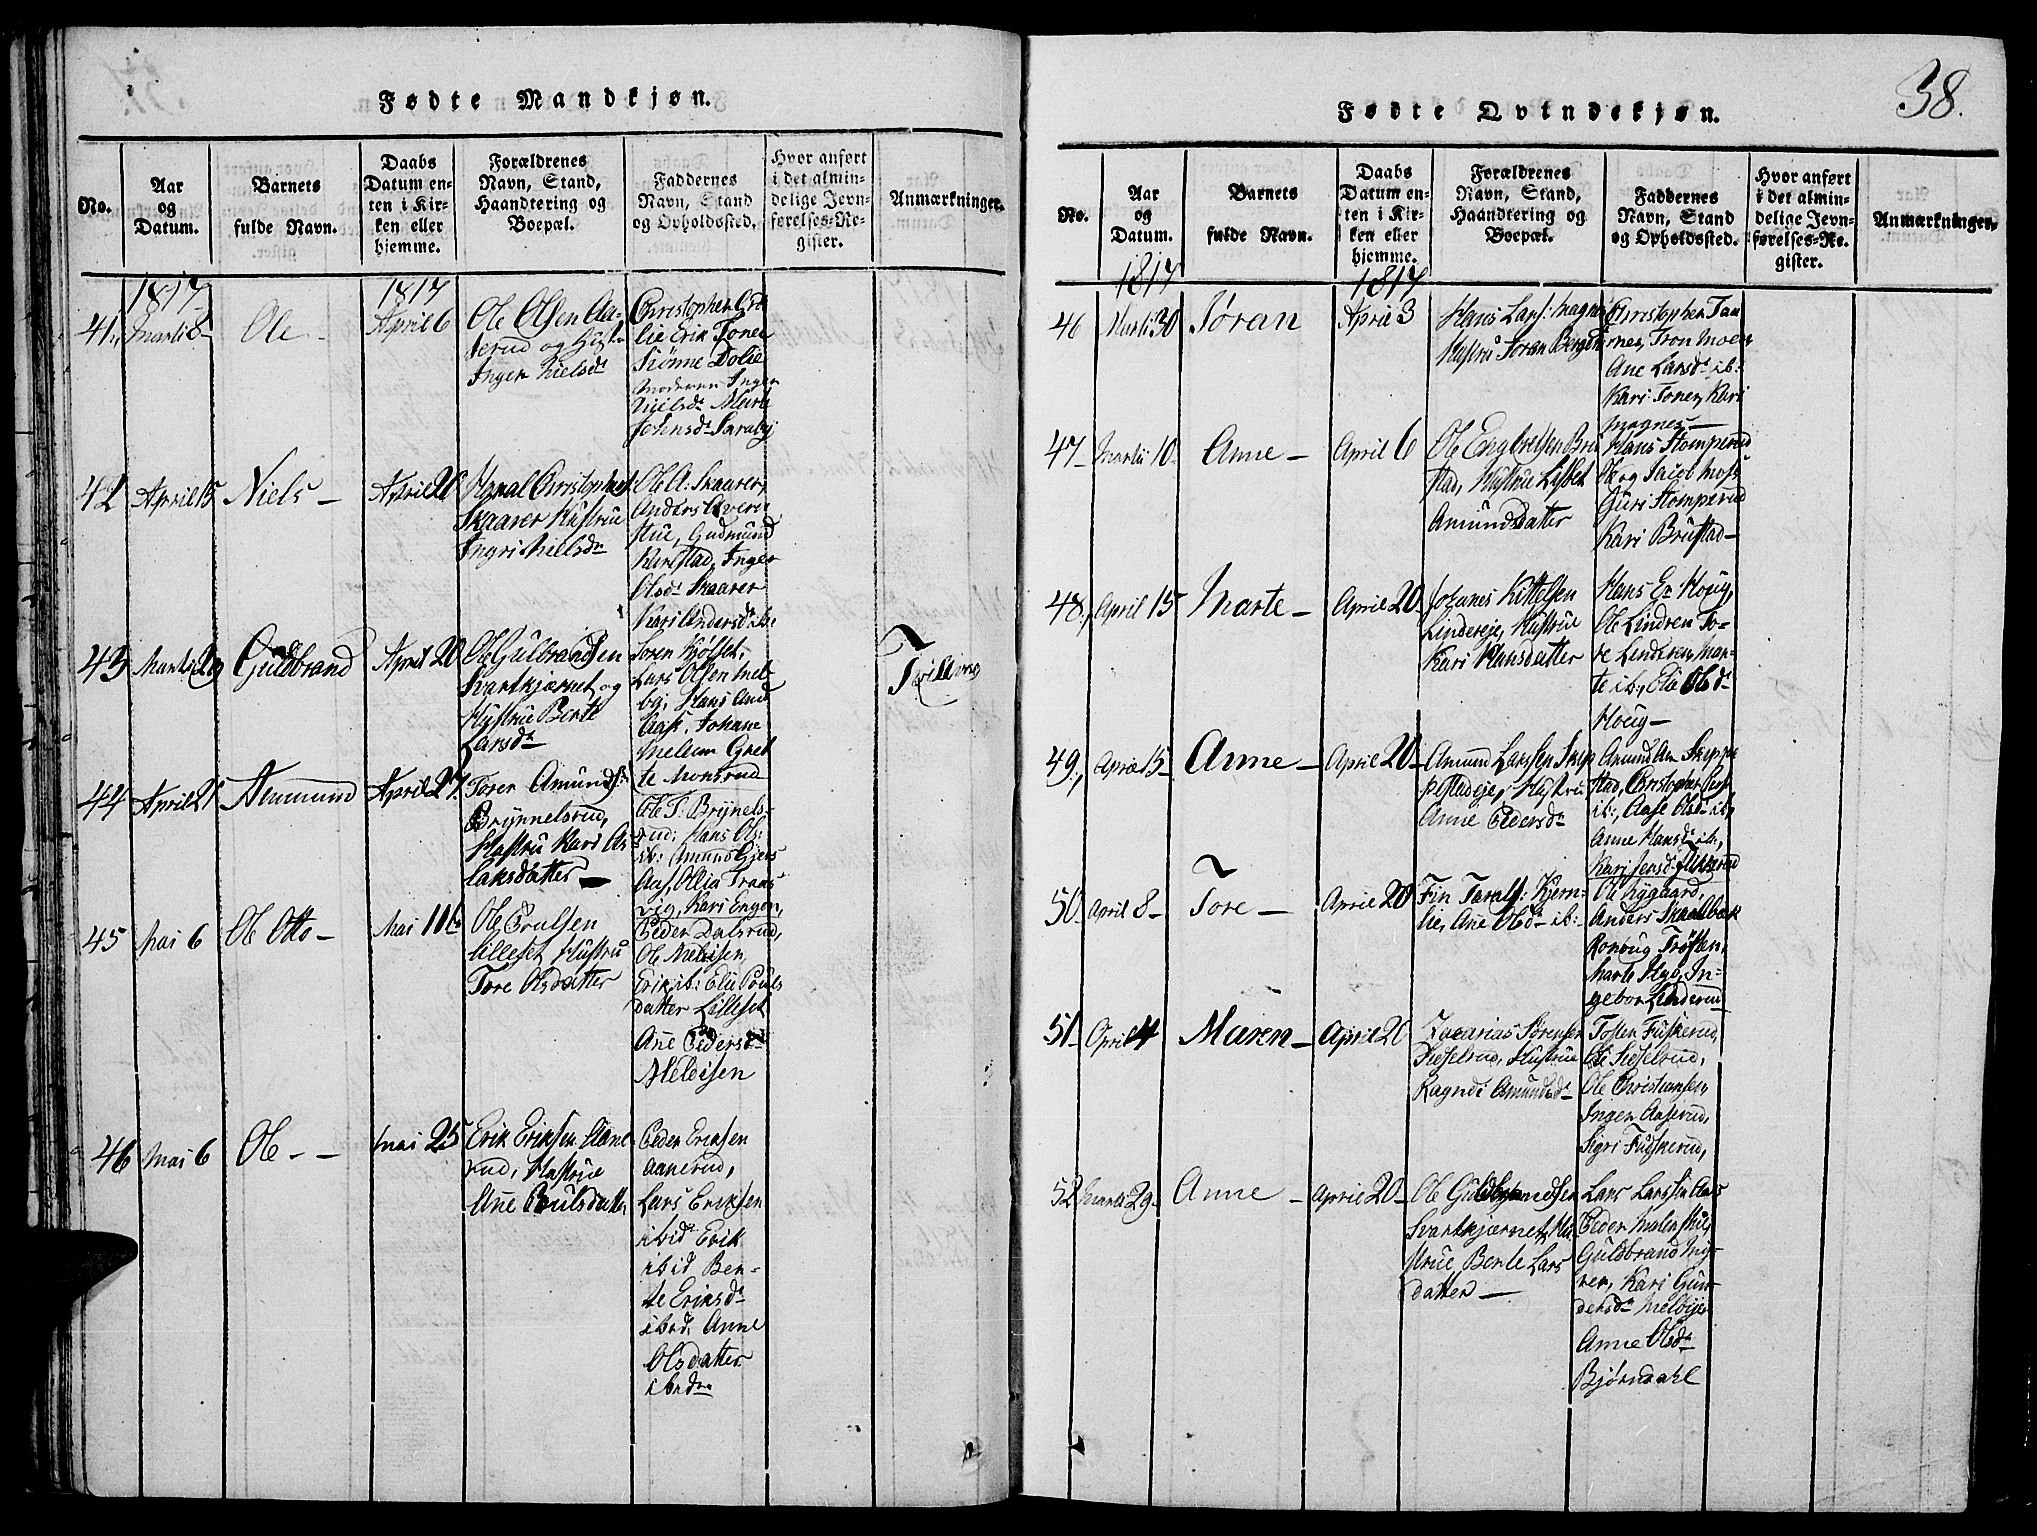 38.
Fødte Mandkjøn.
No.
Aar
og
Datum.
Barnets
fulde Navn.
Daabs
Datum en-
ten i Kir-
ken eller
hjemme.
Forældrenes
Navn, Stand,
Haandtering og
Boepæl.
Faddernes
Navn, Stand
og Opholdssted.
Hvor anført
i det almin-
delige Jevn-
førelses-Re-
gister.
Anmærkninger.
1817
1817
41
Martii 8
Ole
April 6
Ole Olsen Aa-
serud og Hust
Inger Nielsdr
Christopher
lie Erik Toner
Dølie
Moderen Inger
Nielsdr Marte
Johnsdr Saraby
42
April 15
Niels
April 20
Christophers
Skaarer Hustrue
Ingri Nielsdr
Ole A: Skaarer,
Anders
stue, Gudmund
Karlstad, Inger
Olsdr Skaarer
Kari Andersdr ib:
43
Martii 29
Guldbrand
April 20
Ole Gulbrandsen
Svartkjærnet og
Hustrue Berte
Larsdr
Søren Kjølset,
Lars Olsen Mel-
by, Hans
Aas, Johane
Melum Gret
te Monsrud
Tvilling
44
April 21
Ammund
April 27
Torer Amunds:
Brynnelsrud,
Hustru Kari As
laksdatter
Ole T: Brynels-
rud: Hans Ols:
ib: Amund Gjers
Aas, Olia Trans
vig, Kari Engen,
45
Mai 6
Ole Otto
Mai 11
Ole Poulsen
Lilleset Hustru
Tore Olsdatter
Peder Dalsrud,
Ole Melbisen,
Erik ib: Elie Pouls
datter Lilleset
Ane Pedersdr
Melbisen
46
Mai 6
Ole
Mai 25
Erik Eriksen Aane
rud, Hustrue
Ane Poulsdatter
Peder Eriksen
Aanerud,
Lars Eriksen
ibid Erik
ibid Ber-
te Eriksdr
ibid. Anne
Olsdatter
ibid
Fødte Qvindekjøn.
No.
Aar
og
Datum.
Barnets
fulde Navn.
Daabs
Datum en-
ten i Kir-
ken eller
hjemme.
Forældrenes
Navn, Stand,
Haandtering og
Boepæl.
Faddernes
Navn, Stand
og Opholdssted.
Hvor anført
i det almin-
delige Jevn-
førelses-Re.
gister.
Anmærkninger.
1817
1817
46
Martii 30
Jøran
April 3
Hans Lars: Magnes
Hustru Joran
Christopher Tan
nes, Tron Moen
Ane Larsdr ib:
Kari Toner, Kari
Magnes
47
Martii 10
Anne
April 6
Ole Engbretsen Bru
stad, Hustrue Lisbet
Amundsdatter
Hans Stomperud
Ole og Jacob Moss
Guri Stomperud
Kari Brustad
48
April 15
Marte
April 20
Johanes Kittelsen
Lindereje, Hustrue
Kari Hansdatter
Hans Er: Houg,
Ole Linderen To-
re Linderen, Mar-
te ib:, Elie Olsdr
Houg
49
April 15
Anne
April 20
Amund Larssen Skep
pestadeje, Hustru
Anne Pedersdr
Amund Am Skeppe
stad, Christopher
ib:, Aase Olsdr ib,
Anne Hansdr ib:,
Kari Jensdr
50
April 8
Tore
April 20
Fin Taralds: Kjern-
lie, Ane Olsdr ib:
Ole Nygaard,
Anders Skaalbæk
Ronoug Trosten,
Marte Hyb, In-
gebor Linderen
51
April 4
Maren
April 20
Zacarias Sørensen
Sidselrud, Hustrue
Ragndi Amundsdr
Tosten Fuskerud,
Ole Sidselrud,
Ole Christiansen,
Inger Aaserud,
Sigri Fuskerud,
52
Martii 29
Anne
April 20
Ole Guldbrandsen
Svartkjærnet, Hu
strue Berte Lars
datter
Lars Larssen Aas
Peder
Guldbrand Mig-
ner, Kari Gun-
dersdr Melbye
Anne Olsdr
Bjørndahl